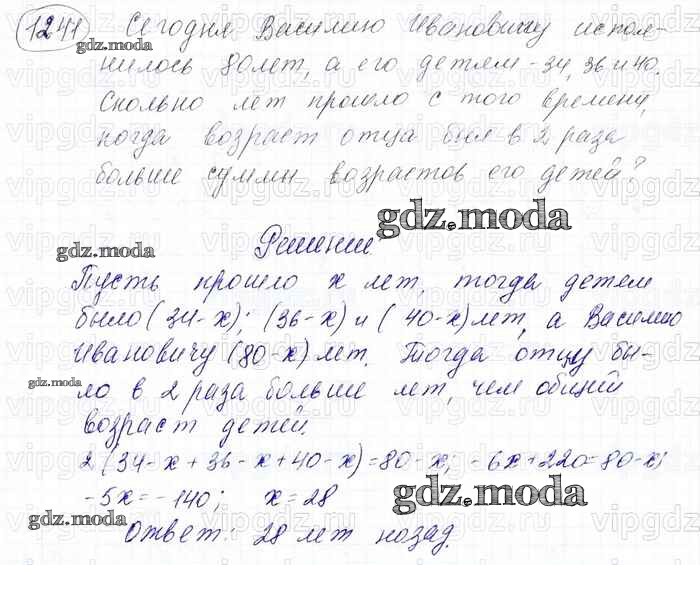 1241 Сегодня Василию Ивановичу испол-
gdz.moda
нилось 80 лет, а его детям - 34, 36 и 40.
Сколько лет прошло с того времени,
когда возраст отца был в 2 раза
больше суммы возрастов его детей?
gdz.moda
gdz.moda
Решение
Пусть прошло x лет, тогда детям
было (34-x); (36-x) и (40-x) лет, а Василию
Ивановичу (80-x) лет. Тогда отцу бы-
gdz.moda
ло в 2 раза больше лет, чем общий
возраст детей.
2(34-x+36-x+40-x)=80-x; -6x+220=80-x;
-5x=-140; x=28
gdz.moda
gdz.moda
Ответ: 28 лет назад.
vipgdz.ru